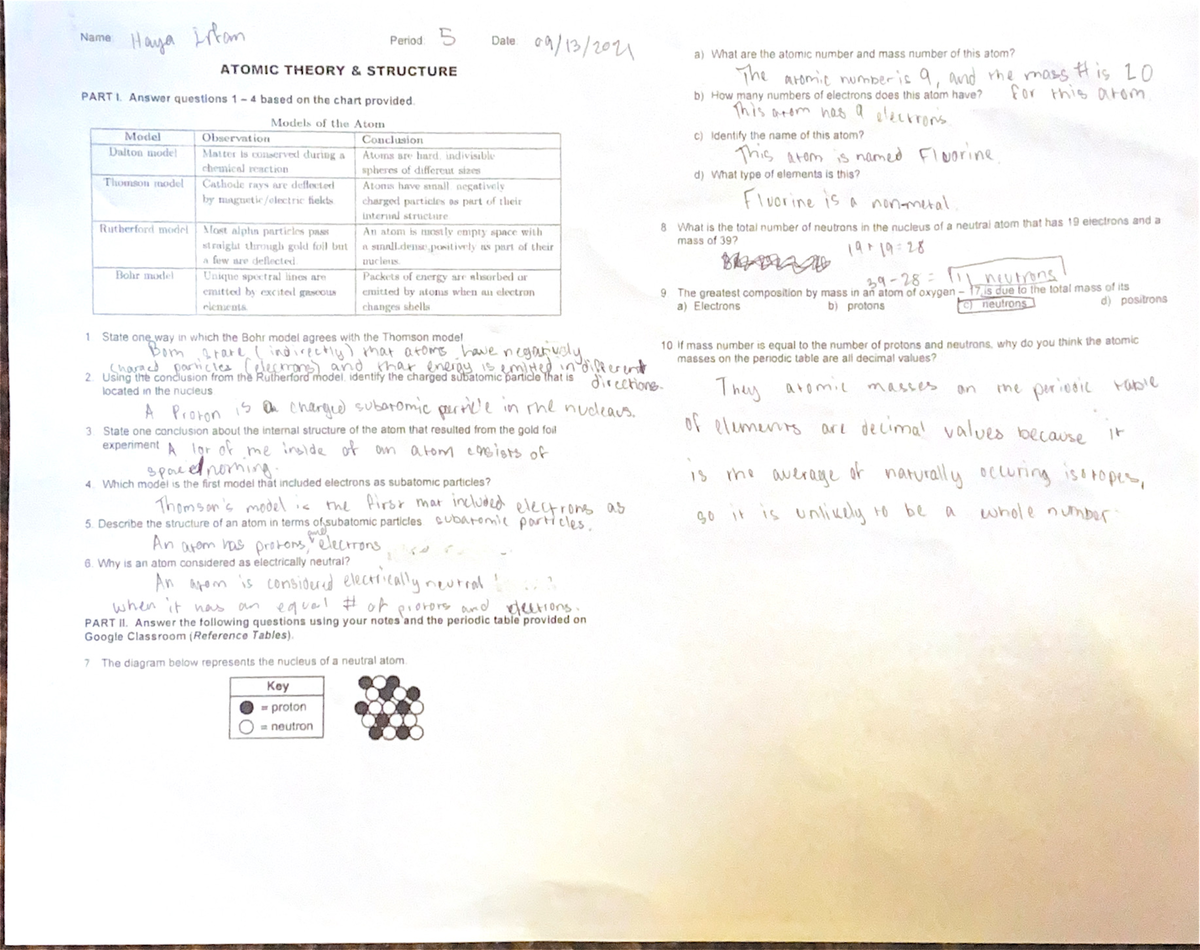 Name Haya Irfan Period 5 Date 09/13/2021
ATOMIC THEORY & STRUCTURE
PART I. Answer questions 1 – 4 based on the chart provided.
Models of the Atom
Model Observation Conclusion
Dalton model Matter is conserved during a chemical reaction Atoms are hard, indivisible spheres of different sizes
Thomson model Cathode rays are deflected by magnetic/electric fields Atoms have small, negatively charged particles as part of their internal structure
Rutherford model Most alpha particles pass straight through gold foil but a few are deflected. An atom is mostly empty space with a small,dense,positively as part of their nucleus.
Bohr model Unique spectral lines are emitted by excited gaseous elements Packets of energy are absorbed or emitted by atoms when an electron changes shells
1 State one way in which the Bohr model agrees with the Thomson model
Both state (indirectly) that atoms have negatively
charged particles (electrons) and that energy is emitted in different
directions.
2. Using the conclusion from the Rutherford model, identify the charged subatomic particle that is
located in the nucleus
A Proton is a charged subatomic particle in the nucleaus.
3. State one conclusion about the internal structure of the atom that resulted from the gold foil
experiment A lot of the inside of an atom consists of
space/nothing.
4. Which model is the first model that included electrons as subatomic particles?
Thomson's model is the first that included electrons as
subatomic particles.
5. Describe the structure of an atom in terms of subatomic particles
An atom has protons, and electrons
6. Why is an atom considered as electrically neutral?
An atom is considered electrically neutral
when it has an equal # of protons and electrons.
PART II. Answer the following questions using your notes and the periodic table provided on
Google Classroom (Reference Tables).
7 The diagram below represents the nucleus of a neutral atom.
Key
= proton
= neutron
a) What are the atomic number and mass number of this atom?
The atomic number is 9, and the mass # is 20
for this atom.
b) How many numbers of electrons does this atom have?
This atom has 9 electrons
c) Identify the name of this atom?
This atom is named Fluorine.
d) What type of elements is this?
Fluorine is a non-metal.
8 What is the total number of neutrons in the nucleus of a neutral atom that has 19 electrons and a
mass of 39?
19+19=28
39-28 = 11 neutrons
9 The greatest composition by mass in an atom of oxygen – 17 is due to the total mass of its
a) Electrons b) protons c) neutrons d) positrons
10 If mass number is equal to the number of protons and neutrons, why do you think the atomic
masses on the periodic table are all decimal values?
They atomic masses on the periodic table
of elements are decimal values because it
is the average of naturally occuring isotopes,
so it is unlikely to be a whole number.